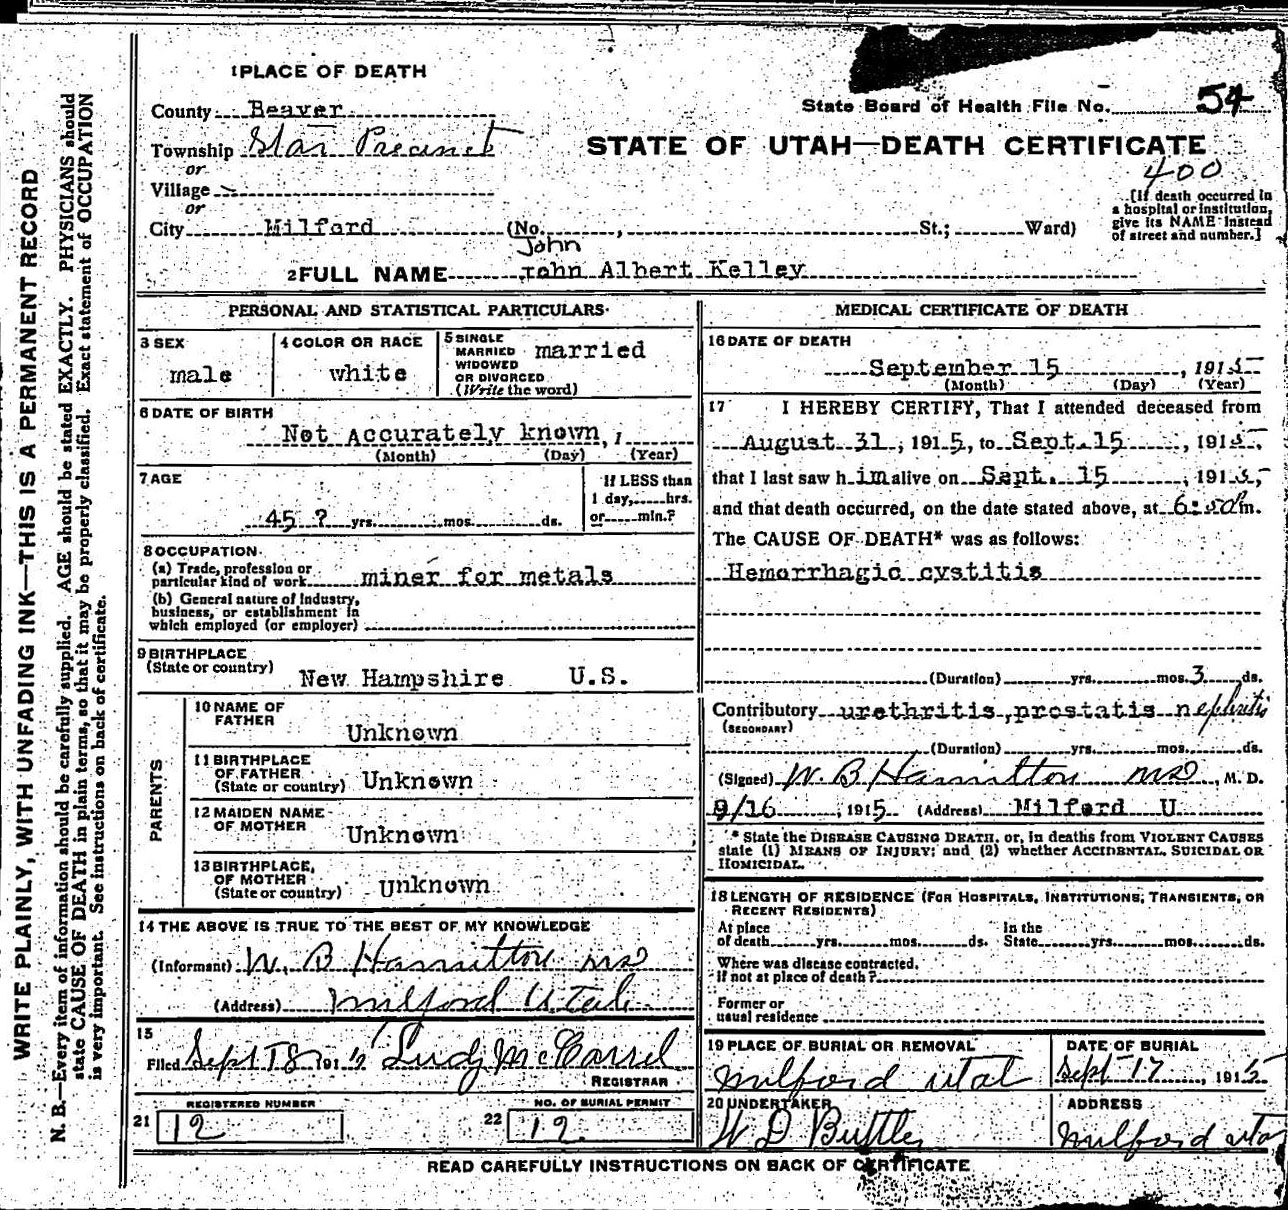 1 PLACE OF DEATH
County Beaver
State Board of Health File No. 54
Township Star Precinct
or
STATE OF UTAH—DEATH CERTIFICATE
400
Village
or
City Milford (No. , St.; Ward)
[If death occurred in
a hospital or institution,
give its NAME instead
of street and number.]
John
2 FULL NAME John Albert Kelley
PERSONAL AND STATISTICAL PARTICULARS
3 SEX
male
4 COLOR OR RACE
white
5 SINGLE
MARRIED
WIDOWED
OR DIVORCED
(Write the word)
married
6 DATE OF BIRTH
Not Accurately known, 1
(Month) (Day) (Year)
7 AGE
45 ? yrs. mos. ds.
If LESS than
1 day, hrs.
or min.?
8 OCCUPATION
(a) Trade, profession or
particular kind of work miner for metals
(b) General nature of industry,
business, or establishment in
which employed (or employer)
9 BIRTHPLACE
(State or country) New Hampshire U.S.
PARENTS
10 NAME OF
FATHER
Unknown
11 BIRTHPLACE
OF FATHER
(State or country) Unknown
12 MAIDEN NAME
OF MOTHER
Unknown
13 BIRTHPLACE,
OF MOTHER
(State or country) Unknown
14 THE ABOVE IS TRUE TO THE BEST OF MY KNOWLEDGE
(Informant) W. B Hamilton MD
(Address) Milford Utah
15
Filed Sept 18 191
REGISTRAR
21 REGISTERED NUMBER
12
22 NO. OF BURIAL PERMIT
12
MEDICAL CERTIFICATE OF DEATH
16 DATE OF DEATH
September 15, 1915
(Month) (Day) (Year)
17 I HEREBY CERTIFY, That I attended deceased from
August 31, 1915, to Sept. 15, 1915,
that I last saw him alive on Sept. 15, 1915,
and that death occurred, on the date stated above, at 6:50 Pm.
The CAUSE OF DEATH* was as follows:
Hemorrhagic cystitis
(Duration) yrs. mos. 3 ds.
Contributory urethritis, prostatis nephritis
(SECONDARY)
(Duration) yrs. mos. ds.
(Signed) W. B. Hamilton MD, M. D.
9/16, 1915 (Address) Milford U
* State the DISEASE CAUSING DEATH, or, in deaths from VIOLENT CAUSES
state (1) MEANS OF INJURY; and (2) whether ACCIDENTAL, SUICIDAL OR
HOMICIDAL.
18 LENGTH OF RESIDENCE (FOR HOSPITALS, INSTITUTIONS, TRANSIENTS, OR
RECENT RESIDENTS)
At place
of death yrs. mos. ds.
In the
State yrs. mos. ds.
Where was disease contracted,
if not at place of death?
Former or
usual residence
19 PLACE OF BURIAL OR REMOVAL
Milford Utah
DATE OF BURIAL
Sept 17, 1915
20 UNDERTAKER
W D Buttler
ADDRESS
Milford Utah
READ CAREFULLY INSTRUCTIONS ON BACK OF CERTIFICATE
WRITE PLAINLY, WITH UNFADING INK—THIS IS A PERMANENT RECORD
N. B.—Every item of information should be carefully supplied. AGE should be stated EXACTLY. PHYSICIANS should
state CAUSE OF DEATH in plain terms, so that it may be properly classified. Exact statement of OCCUPATION
is very important. See instructions on back of certificate.